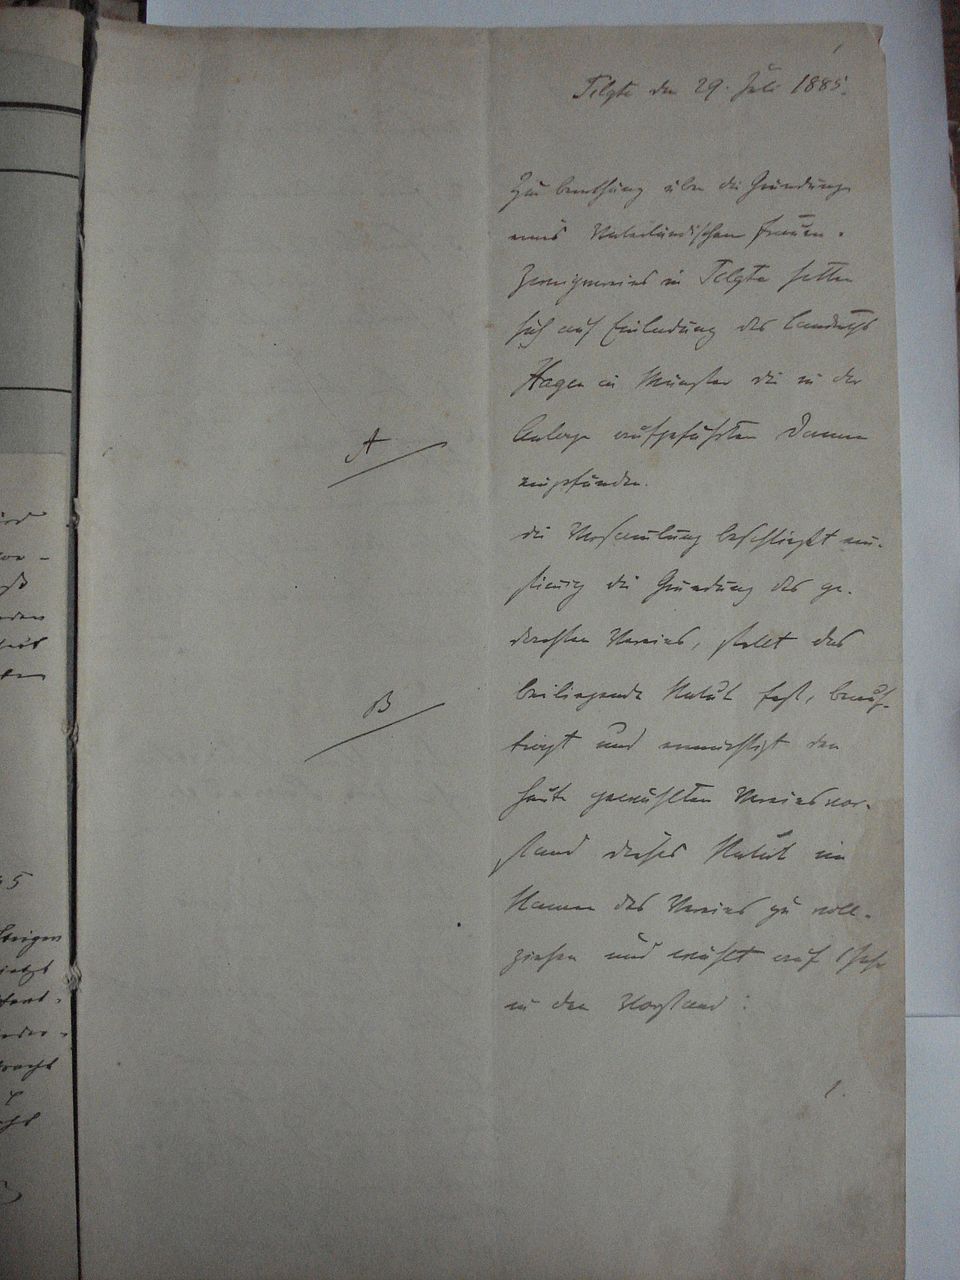 Telgte den 29. Juli 1885.
Zur Berathung über die Gründung
eines Vaterländischen Frauen-
Zweigvereins in Telgte hatten
sich auf Einladung des Landraths
Hagen in Münster die in der
A
Anlage aufgeführten Damen
eingefunden.
die Versamlung beschließt ein-
stimig die Gründung des ge-
dachten Vereins, stellt das
B
beiliegende Statut fest, beauf-
tragt und ermächtigt den
heute gewählten Vereinsvor-
stand dieses Statut im
Namen des Vereins zu voll-
ziehen und wählt auf 1 Jahr
in den Vorstand:
1.